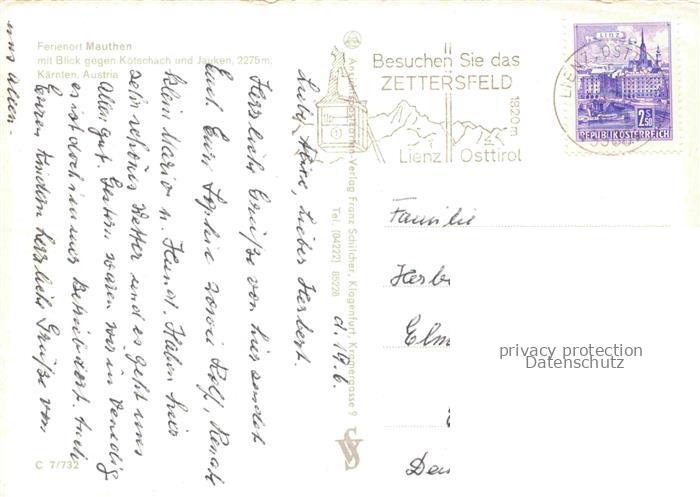 Ferienort Mauthen
mit Blick gegen Kötschach und Jauken, 2275m;
Kärnten, Austria
Besuchen Sie das
ZETTERSFELD
1820m
Lienz Osttirol
LIENZ
2S50
REPUBLIK ÖSTERREICH
LIENZ, OSTT
9900
Ansichtskarten-Verlag Franz Schilcher, Klagenfurt, Kramergasse 9
Tel. (04222) 85228
d. 19.6.
Liebe Aline, lieber Herbert.
Herzliche Grüße von hier sendet
Euch Eure Sophie sowie Rolf, Renate
klein Mario u. Hund. Haben hier
sehr schönes Wetter und es geht uns
allen gut. Gestern waren wir in Venedig
es ist doch immer Betrieb dort. Auch
Euren Kindern herzliche Grüße von
uns allen.
Familie
Herb
Elm
Deu
C 7/732
privacy protection
Datenschutz